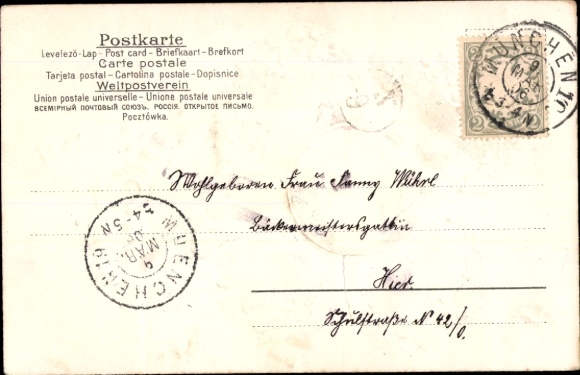 Postkarte
Levelező-Lap - Post card - Briefkaart - Brefkort
Carte postale
Tarjeta postal - Cartolina postale - Dopisnice
Weltpostverein
Union postale universelle - Unione postale universale
ВСЕМІРНЫЙ ПОЧТОВЫЙ СОЮЗЪ. РОССІЯ. ОТКРЫТОЕ ПИСЬМО.
Pocztówka.
MÜNCHEN
9
MAR
06
2 2
Wohlgeboren Frau Fanny Wührl
Bäckermeistersgattin
Hier.
Schulstraße N 42/0.
MUENCHEN 19
9
MAR.
4-5N